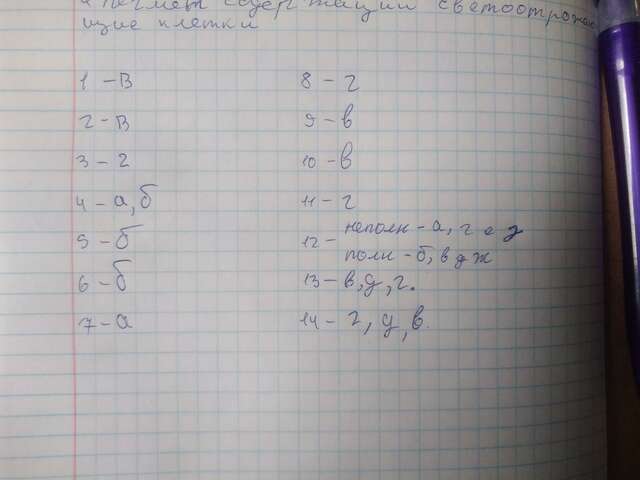 и пегмет содержащий светоотрожаю
щие клетки
1 – в
2 – в
3 – г
4 – а, б
5 – б
6 – б
7 – а
8 – г
9 – в
10 – в
11 – г
12 – неполн – а, г е з
полн – б, в д ж
13 – в, д, г.
14 – г, д, в.